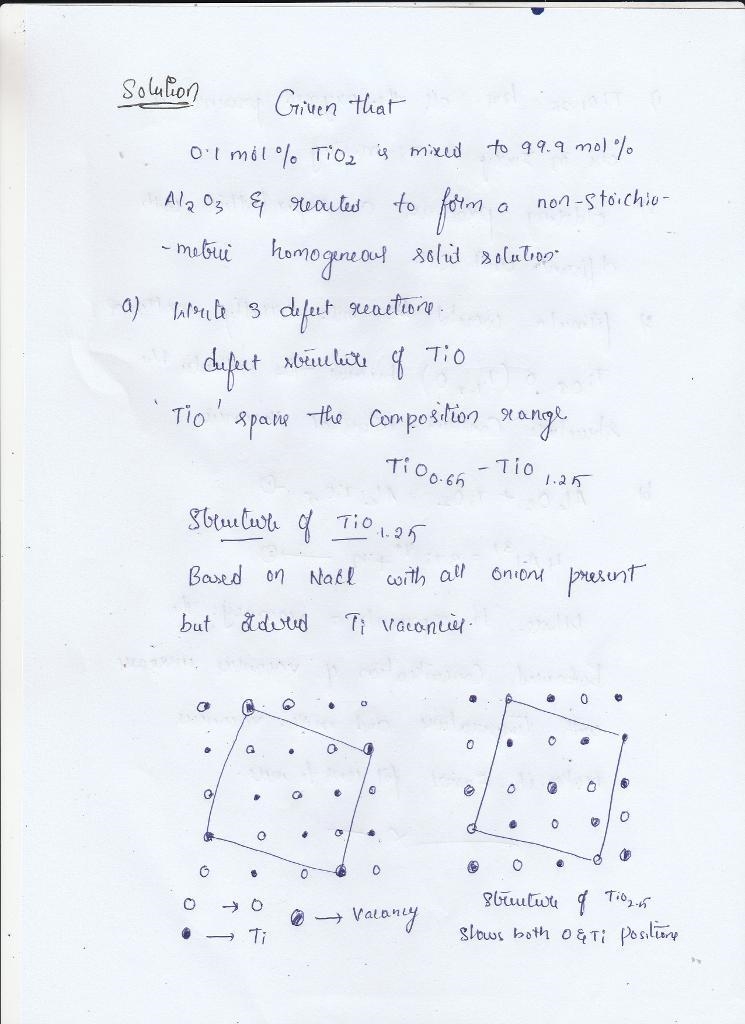 Solution
Given that
0.1 mol % TiO2 is mixed to 99.9 mol %
Al2O3 & reacted to form a non-stoichio-
-metric homogeneous solid solution.
a) Write 3 defect reactions.
defect structure of TiO
'TiO' spans the composition range
TiO0.65 - TiO1.25
Structure of TiO1.25
Based on NaCl with all anions present
but ordered Ti vacancies.
O → O
● → Ti
→ Vacancy
Structure of TiO2.5
Shows both O & Ti positions